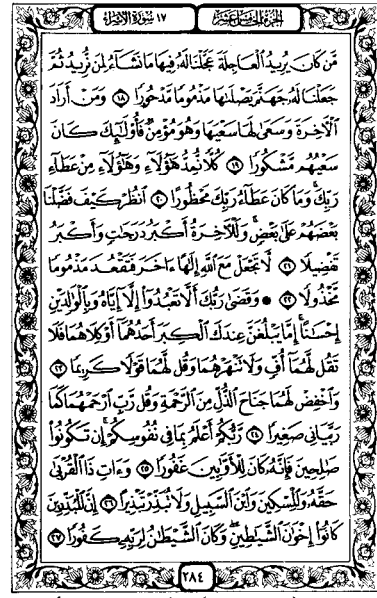 الجزء الخامس عشر
١٧ سورة الإسراء
مَّن كَانَ يُرِيدُ ٱلۡعَاجِلَةَ عَجَّلۡنَا لَهُۥ فِيهَا مَا نَشَآءُ لِمَن نُّرِيدُ ثُمَّ
جَعَلۡنَا لَهُۥ جَهَنَّمَ يَصۡلَىٰهَا مَذۡمُومٗا مَّدۡحُورٗا ١٨ وَمَنۡ أَرَادَ
ٱلۡأٓخِرَةَ وَسَعَىٰ لَهَا سَعۡيَهَا وَهُوَ مُؤۡمِنٞ فَأُوْلَٰٓئِكَ كَانَ
سَعۡيُهُم مَّشۡكُورٗا ١٩ كُلّٗا نُّمِدُّ هَٰٓؤُلَآءِ وَهَٰٓؤُلَآءِ مِنۡ عَطَآءِ
رَبِّكَۚ وَمَا كَانَ عَطَآءُ رَبِّكَ مَحۡظُورًا ٢٠ ٱنظُرۡ كَيۡفَ فَضَّلۡنَا
بَعۡضَهُمۡ عَلَىٰ بَعۡضٖۚ وَلَلۡأٓخِرَةُ أَكۡبَرُ دَرَجَٰتٖ وَأَكۡبَرُ
تَفۡضِيلٗا ٢١ لَّا تَجۡعَلۡ مَعَ ٱللَّهِ إِلَٰهًا ءَاخَرَ فَتَقۡعُدَ مَذۡمُومٗا
مَّخۡذُولٗا ٢٢ ۞ وَقَضَىٰ رَبُّكَ أَلَّا تَعۡبُدُوٓاْ إِلَّآ إِيَّاهُ وَبِٱلۡوَٰلِدَيۡنِ
إِحۡسَٰنًاۚ إِمَّا يَبۡلُغَنَّ عِندَكَ ٱلۡكِبَرَ أَحَدُهُمَآ أَوۡ كِلَاهُمَا فَلَا
تَقُل لَّهُمَآ أُفّٖ وَلَا تَنۡهَرۡهُمَا وَقُل لَّهُمَا قَوۡلٗا كَرِيمٗا ٢٣
وَٱخۡفِضۡ لَهُمَا جَنَاحَ ٱلذُّلِّ مِنَ ٱلرَّحۡمَةِ وَقُل رَّبِّ ٱرۡحَمۡهُمَا كَمَا
رَبَّيَانِي صَغِيرٗا ٢٤ رَّبُّكُمۡ أَعۡلَمُ بِمَا فِي نُفُوسِكُمۡۚ إِن تَكُونُواْ
صَٰلِحِينَ فَإِنَّهُۥ كَانَ لِلۡأَوَّٰبِينَ غَفُورٗا ٢٥ وَءَاتِ ذَا ٱلۡقُرۡبَىٰ
حَقَّهُۥ وَٱلۡمِسۡكِينَ وَٱبۡنَ ٱلسَّبِيلِ وَلَا تُبَذِّرۡ تَبۡذِيرًا ٢٦ إِنَّ ٱلۡمُبَذِّرِينَ
كَانُوٓاْ إِخۡوَٰنَ ٱلشَّيَٰطِينِۖ وَكَانَ ٱلشَّيۡطَٰنُ لِرَبِّهِۦ كَفُورٗا ٢٧
٢٨٤